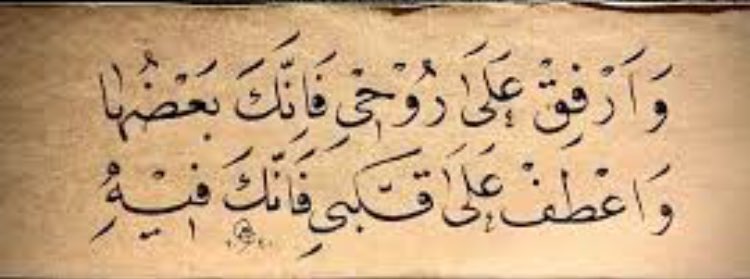 وَارْفِقْ عَلَىٰ رُوْحِي فَإِنَّكَ بَعْضُهَا
وَاعْطِفْ عَلَىٰ قَلْبِي فَإِنَّكَ فِيْهِ